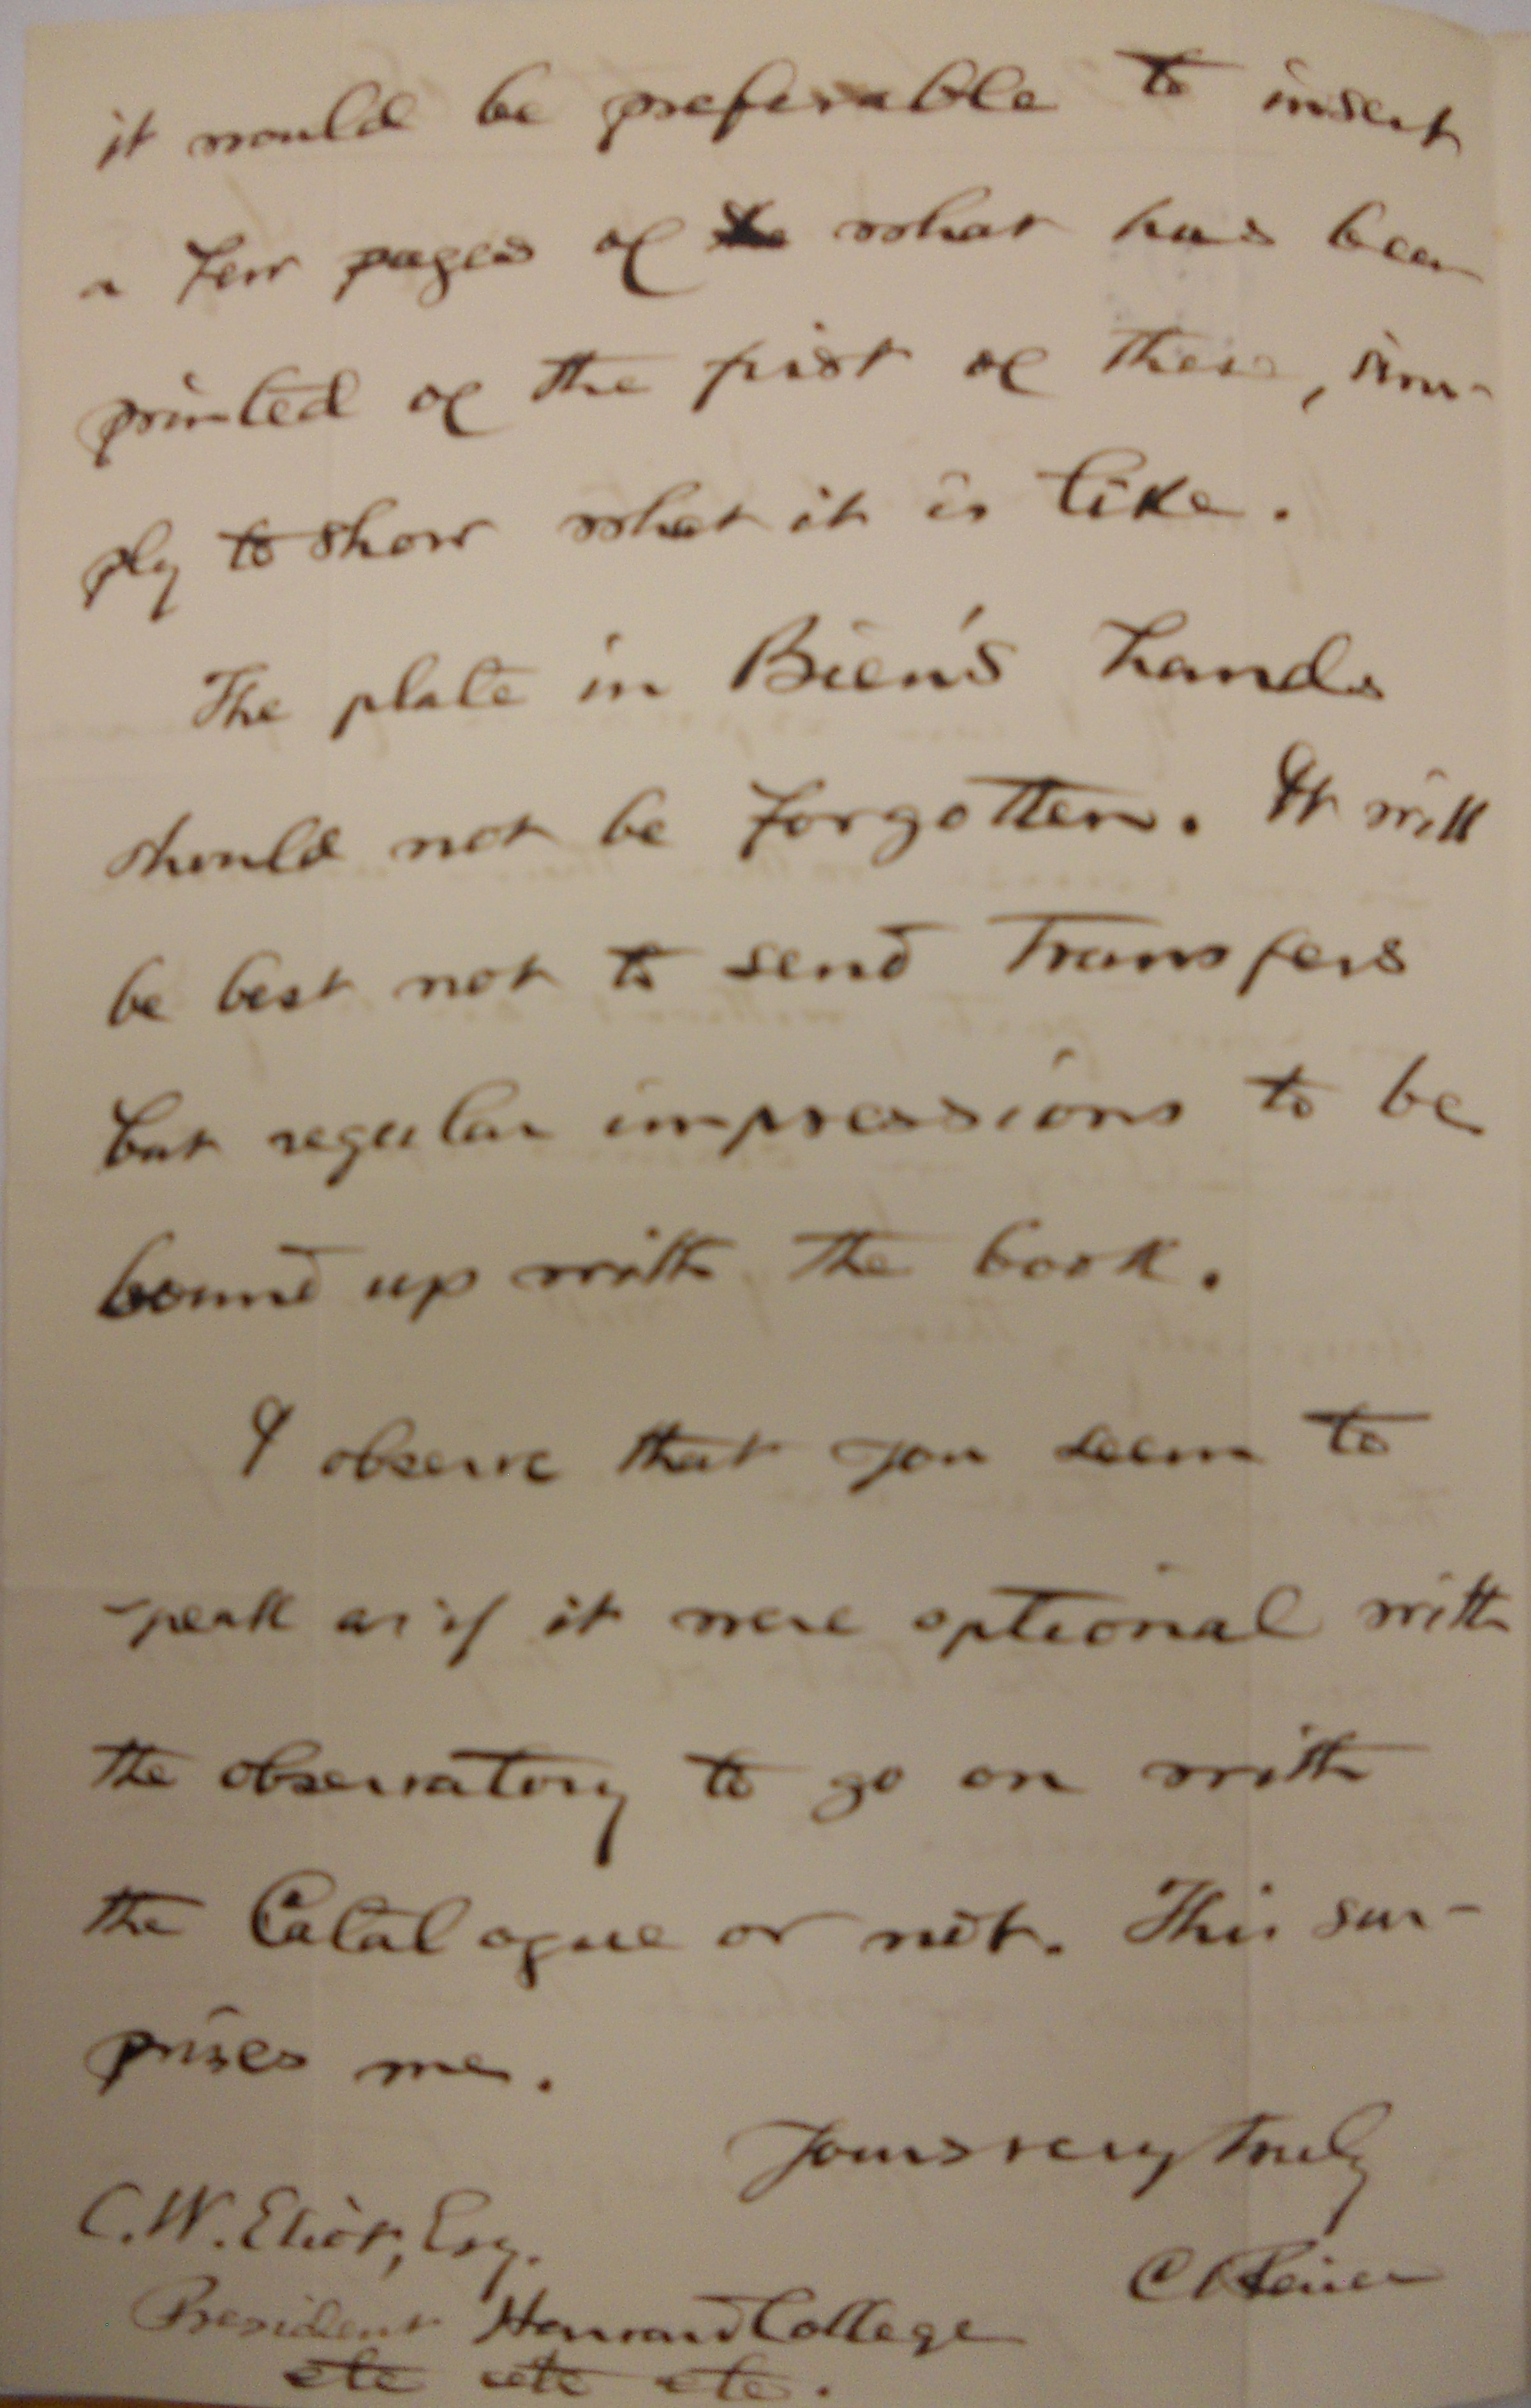 it would be preferable to insert
a few pages of what has been
printed of the first of these, sim-
ply to show what it is like.
The plate in Bien's hands
should not be forgotten. It will
be best not to send transfers
but regular impressions to be
bound up with the book.
I observe that you seem to
speak as if it were optional with
the observatory to go on with
the Catalogue or not. This sur-
prises me.
Yours very truly
C.W. Eliot, Esq.
C S Peirce
President Harvard College
etc etc etc.